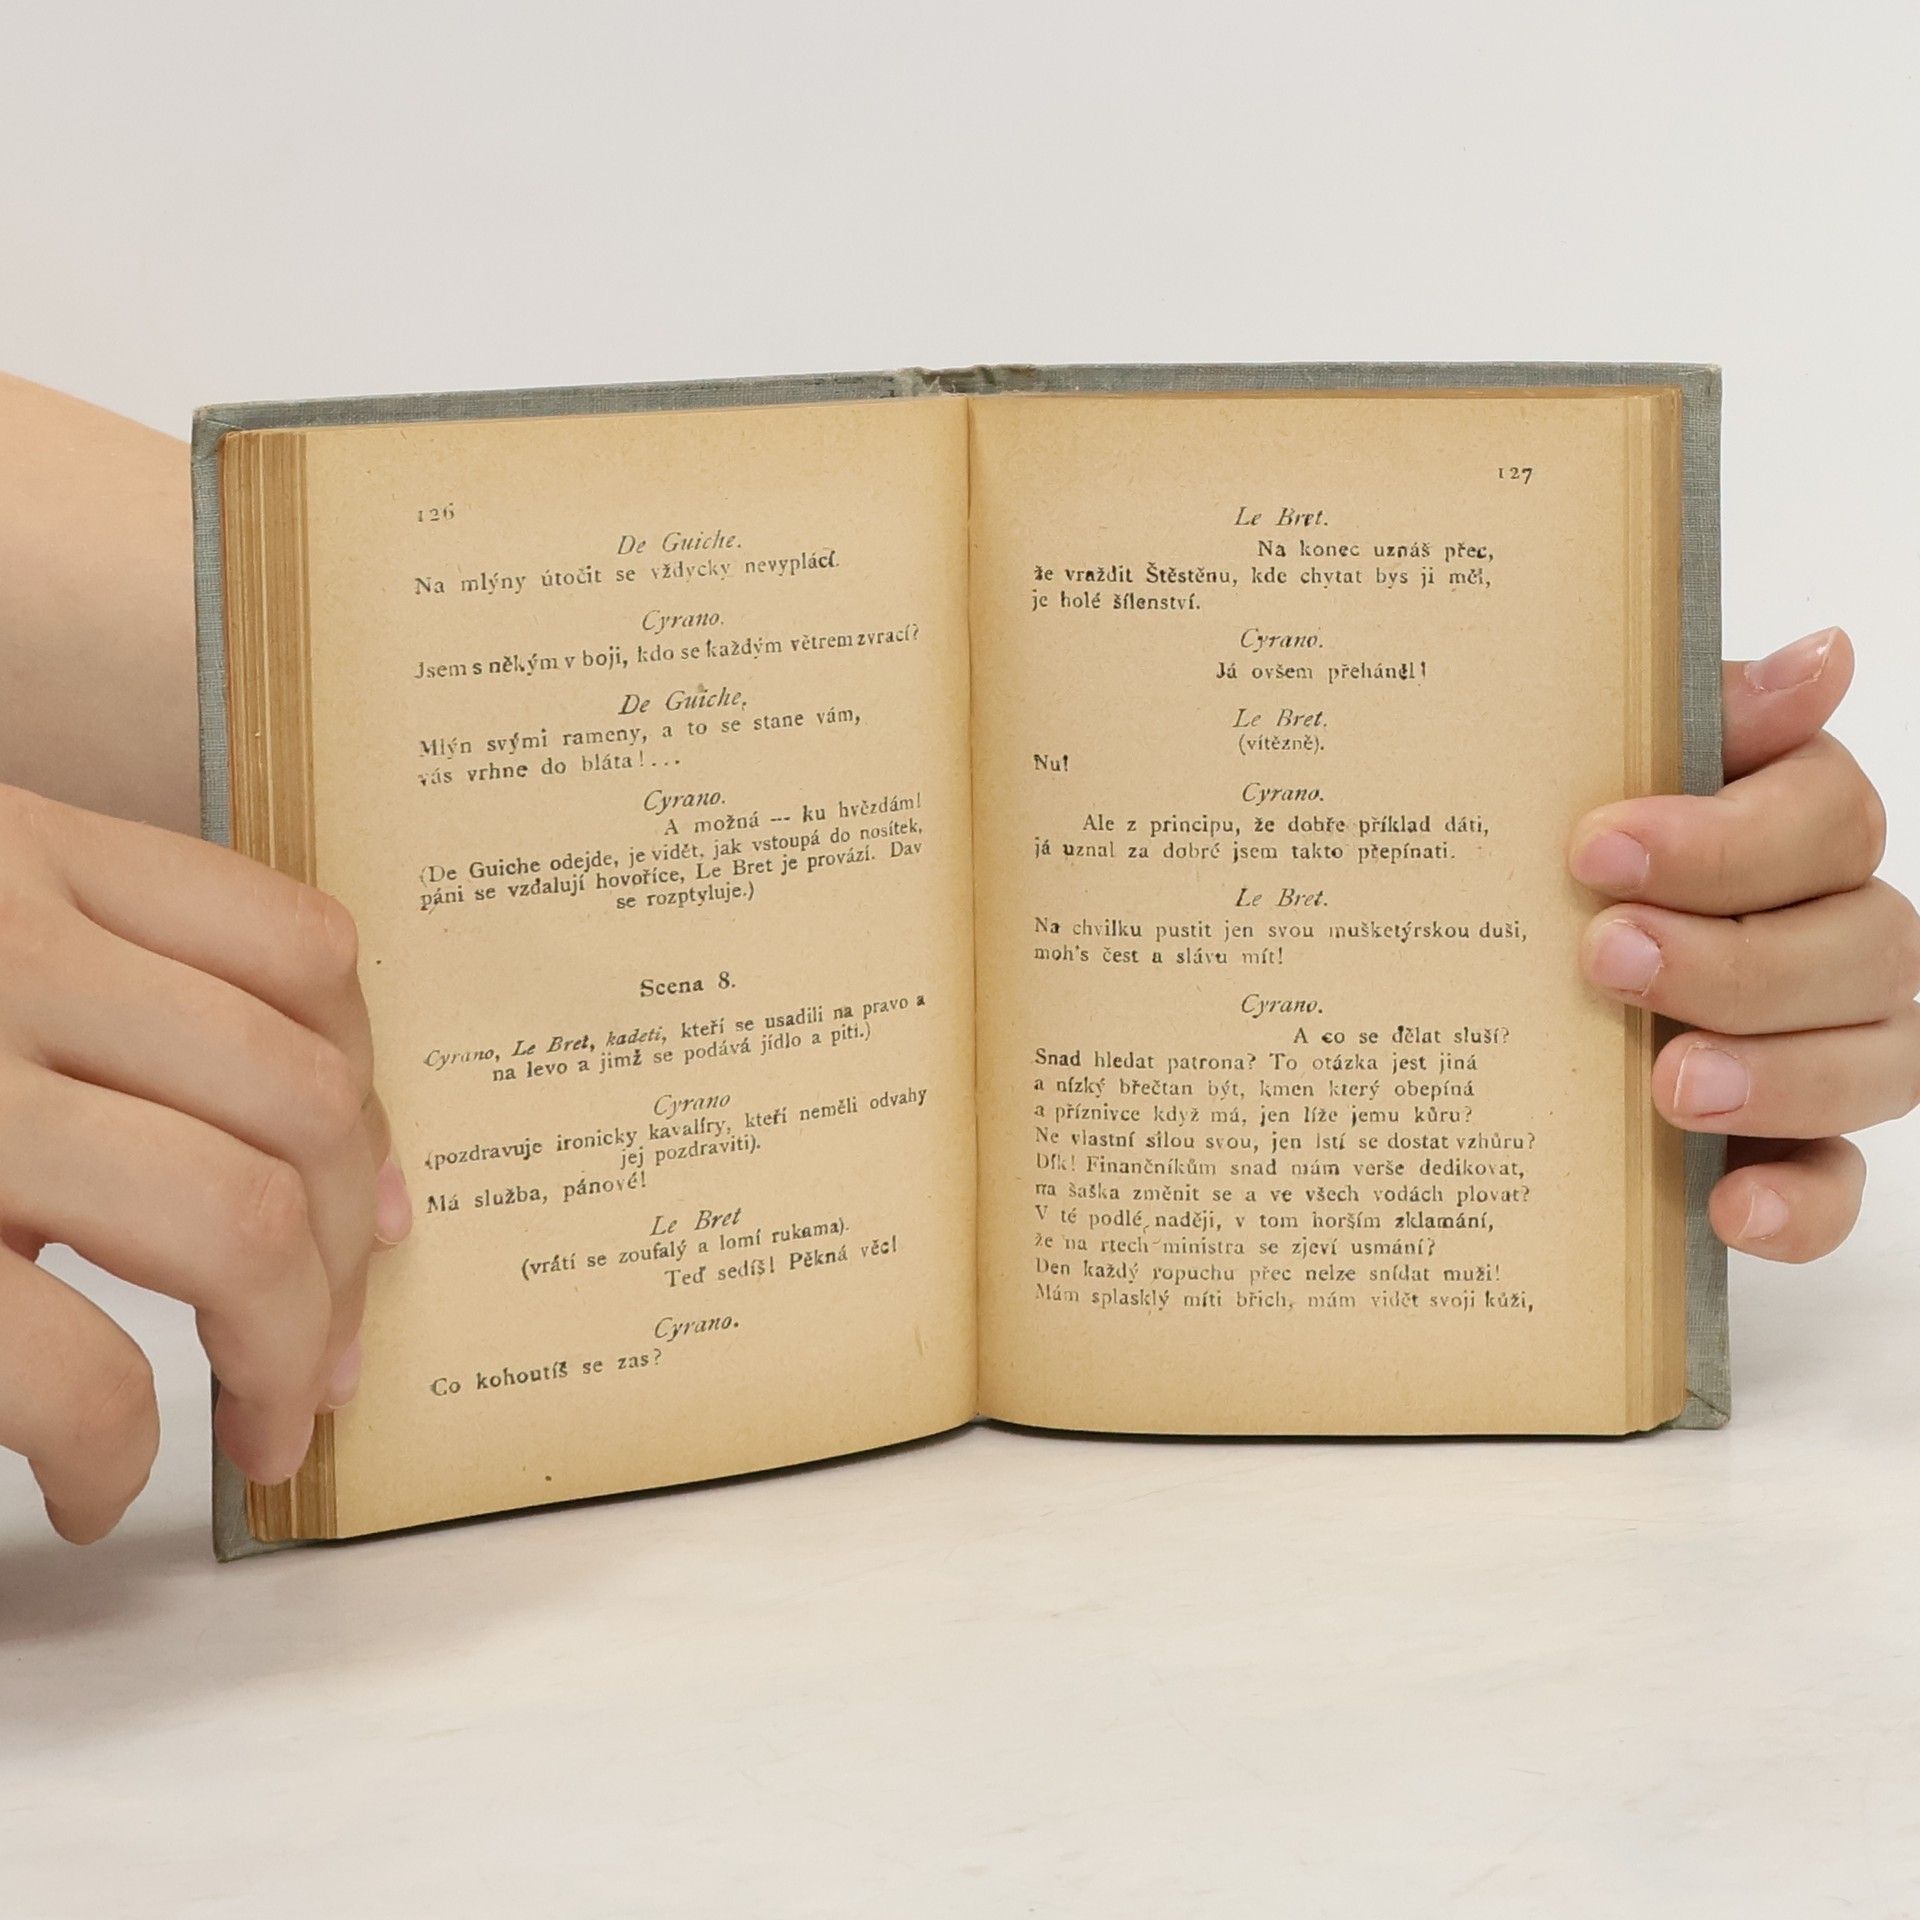 126
De Guiche.
Na mlýny útočit se vždycky nevyplácí.
Cyrano.
Jsem s někým v boji, kdo se každým větrem zvrací?
De Guiche.
Mlýn svými rameny, a to se stane vám,
vás vrhne do bláta!...
Cyrano.
A možná --- ku hvězdám!
(De Guiche odejde, je vidět, jak vstoupá do nosítek,
páni se vzdalují hovoříce, Le Bret je provází. Dav
se rozptyluje.)
Scena 8.
Cyrano, Le Bret, kadeti, kteří se usadili na pravo a
na levo a jimž se podává jídlo a piti.)
Cyrano
(pozdravuje ironicky kavalíry, kteří neměli odvahy
jej pozdraviti).
Má služba, pánové!
Le Bret
(vrátí se zoufalý a lomí rukama).
Teď sedíš! Pěkná věc!
Cyrano.
Co kohoutíš se zas?
127
Le Bret.
Na konec uznáš přec,
že vraždit Štěstěnu, kde chytat bys ji měl,
je holé šílenství.
Cyrano.
Já ovšem přeháněl!
Le Bret.
(vítězně).
Nu!
Cyrano.
Ale z principu, že dobře příklad dáti,
já uznal za dobré jsem takto přepínati.
Le Bret.
Na chvilku pustit jen svou mušketýrskou duši,
moh's čest a slávu mít!
Cyrano.
A co se dělat sluší?
Snad hledat patrona? To otázka jest jiná
a nízký břečtan být, kmen který obepíná
a příznivce když má, jen líže jemu kůru?
Ne vlastní silou svou, jen lstí se dostat vzhůru?
Dík! Finančníkům snad mám verše dedikovat,
na šaška změnit se a ve všech vodách plovat?
V té podlé naději, v tom horším zklamání,
že na rtech ministra se zjeví usmání?
Den každý ropuchu přec nelze snídat muži!
Mám splasklý míti břich, mám vidět svoji kůži,